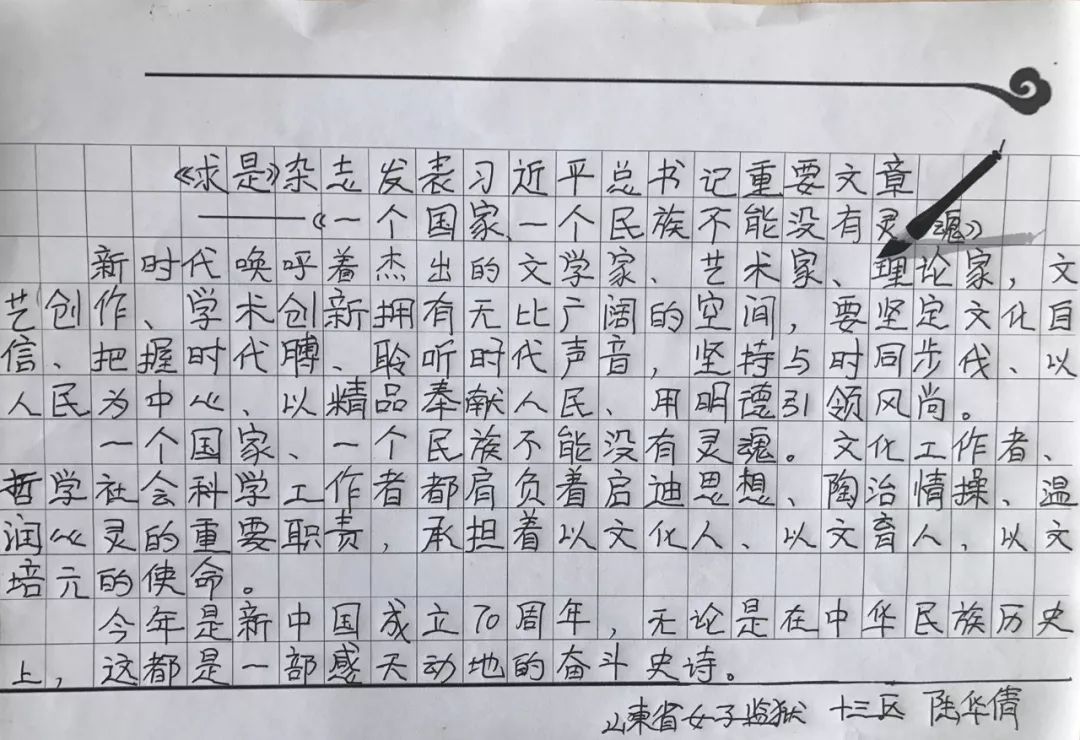 《求是》杂志发表习近平总书记重要文章
——《一个国家、一个民族不能没有灵魂》
新时代唤呼着杰出的文学家、艺术家、理论家，文
艺创作、学术创新拥有无比广阔的空间，要坚定文化自
信、把握时代聘、聆听时代声音，坚持与时同步伐、以
人民为中心、以精品奉献人民、用明德引领风尚。
一个国家、一个民族不能没有灵魂。文化工作者、
哲学社会科学工作者都肩负着启迪思想、陶冶情操、温
润心灵的重要职责，承担着以文化人、以文育人、以文
培元的使命。
今年是新中国成立70周年，无论是在中华民族历史
上，这都是一部感天动地的奋斗史诗。
山東省女子监狱 十三区 陆华倩